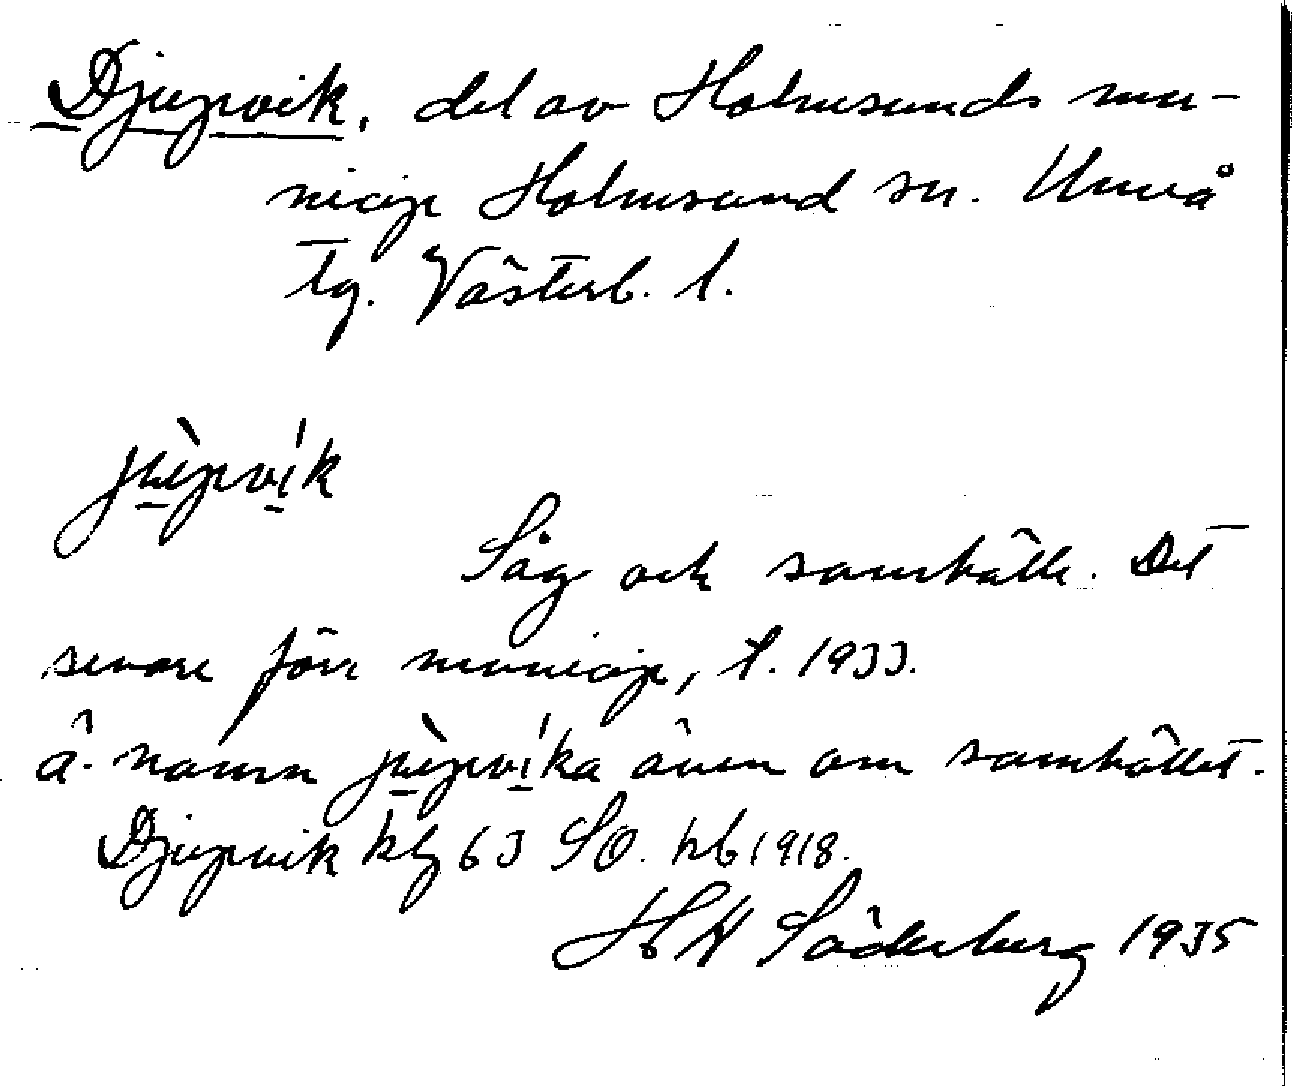 Djupvik, del av Holmsunds mu-
nicip Holmsund sn. Umeå
tg. Västerb. l.
jùpvík
Såg och samhälle. Det
senare förr municip, t. 1933.
Ä. namn jùpvíka även om samhället.
Djupvik kbl 63 SO. hb 1918.
H Söderberg 1935